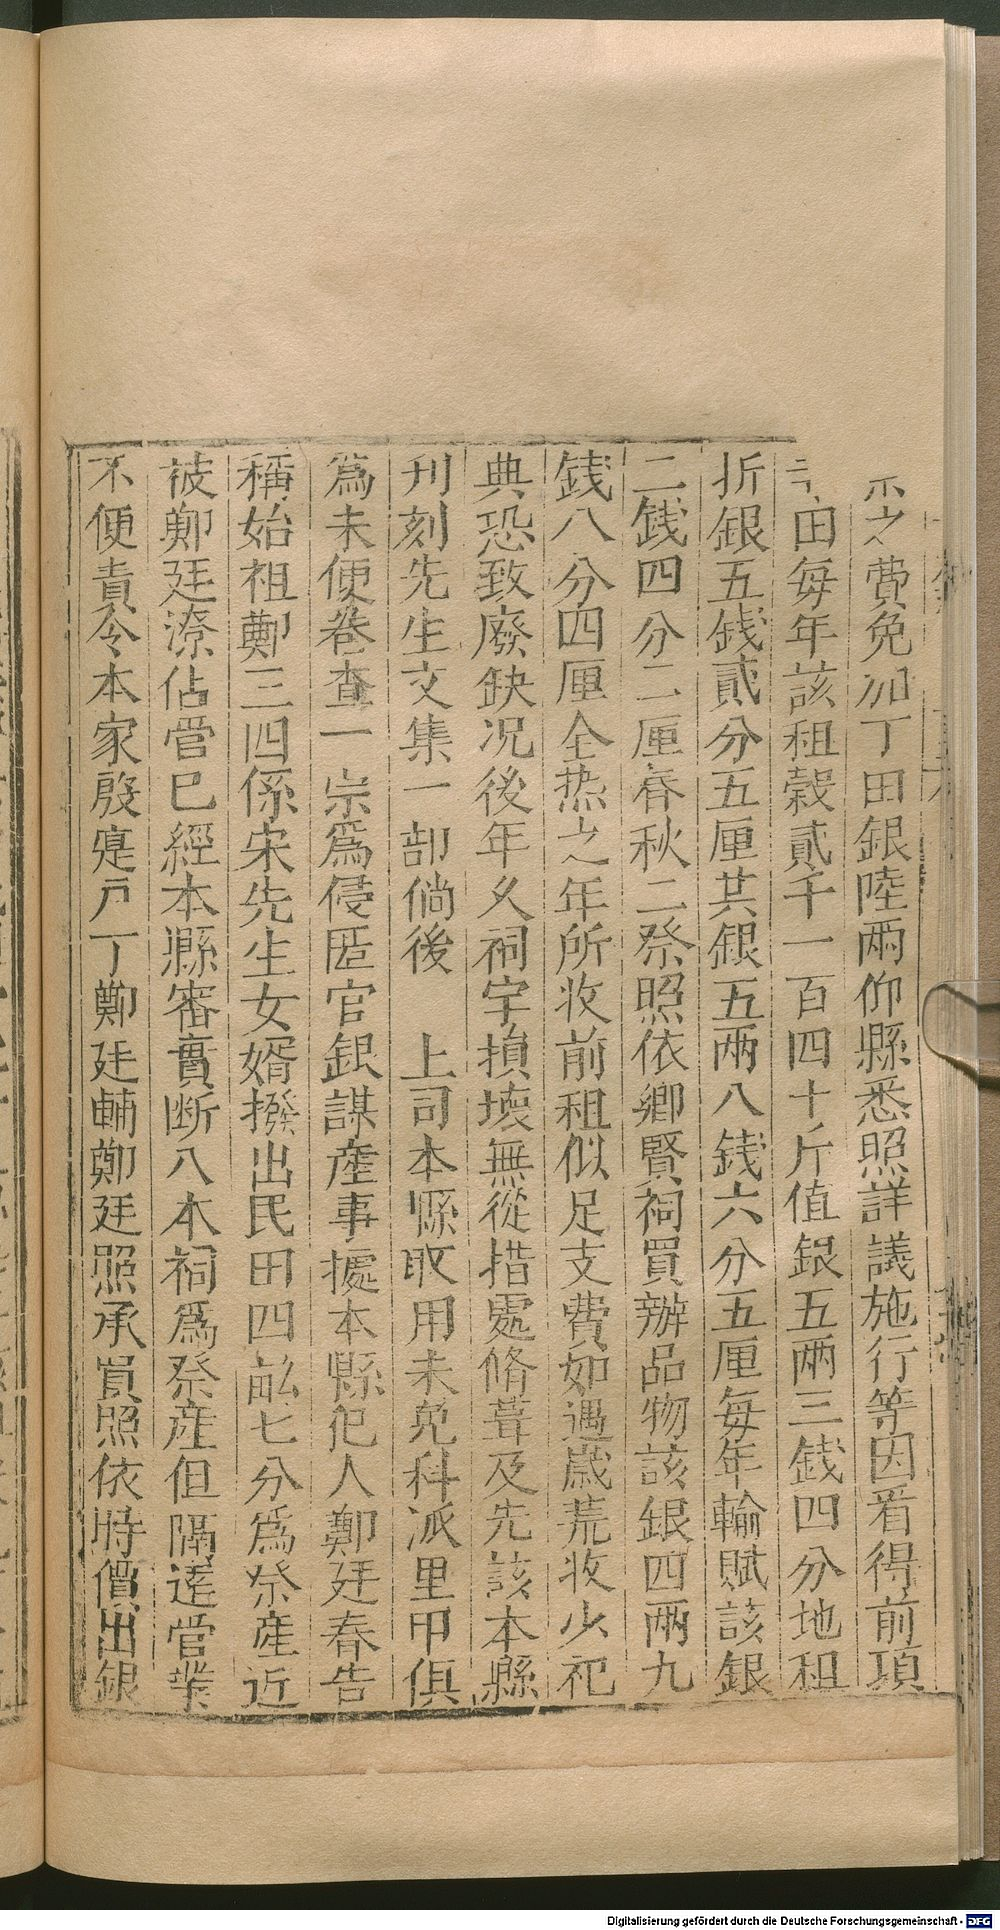 之費免加丁田銀陸兩仰縣悉照詳議施行等因看得前項
田每年該租穀貳千一百四十斤值銀五两三錢四分地租
折銀五錢貳分五厘共銀五两八錢六分五厘每年輸賦該銀
二錢四分二厘春秋二祭照依鄉賢祠買辦品物該銀四兩九
錢八分四厘全熱之年所收前租似足支費如遇歲荒收少祀
典恐致廢缺况後年久祠宇損壞無從措處脩葺及先該本縣
刊刻先生文集一部倘後　上司本縣取用未免科派里甲俱
爲未便卷查一宗爲侵匿官銀謀產事據本縣犯人鄭廷春告
稱始祖鄭三四係宋先生女婿撥出民田四畝七分爲祭產近
被鄭廷潦佔管已經本縣審實断入本祠爲祭產但隔遠管業
不便責令本家殷寔戶丁鄭廷輔鄭廷照承買照依時價出銀
Digitalisierung gefördert durch die Deutsche Forschungsgemeinschaft - DFG